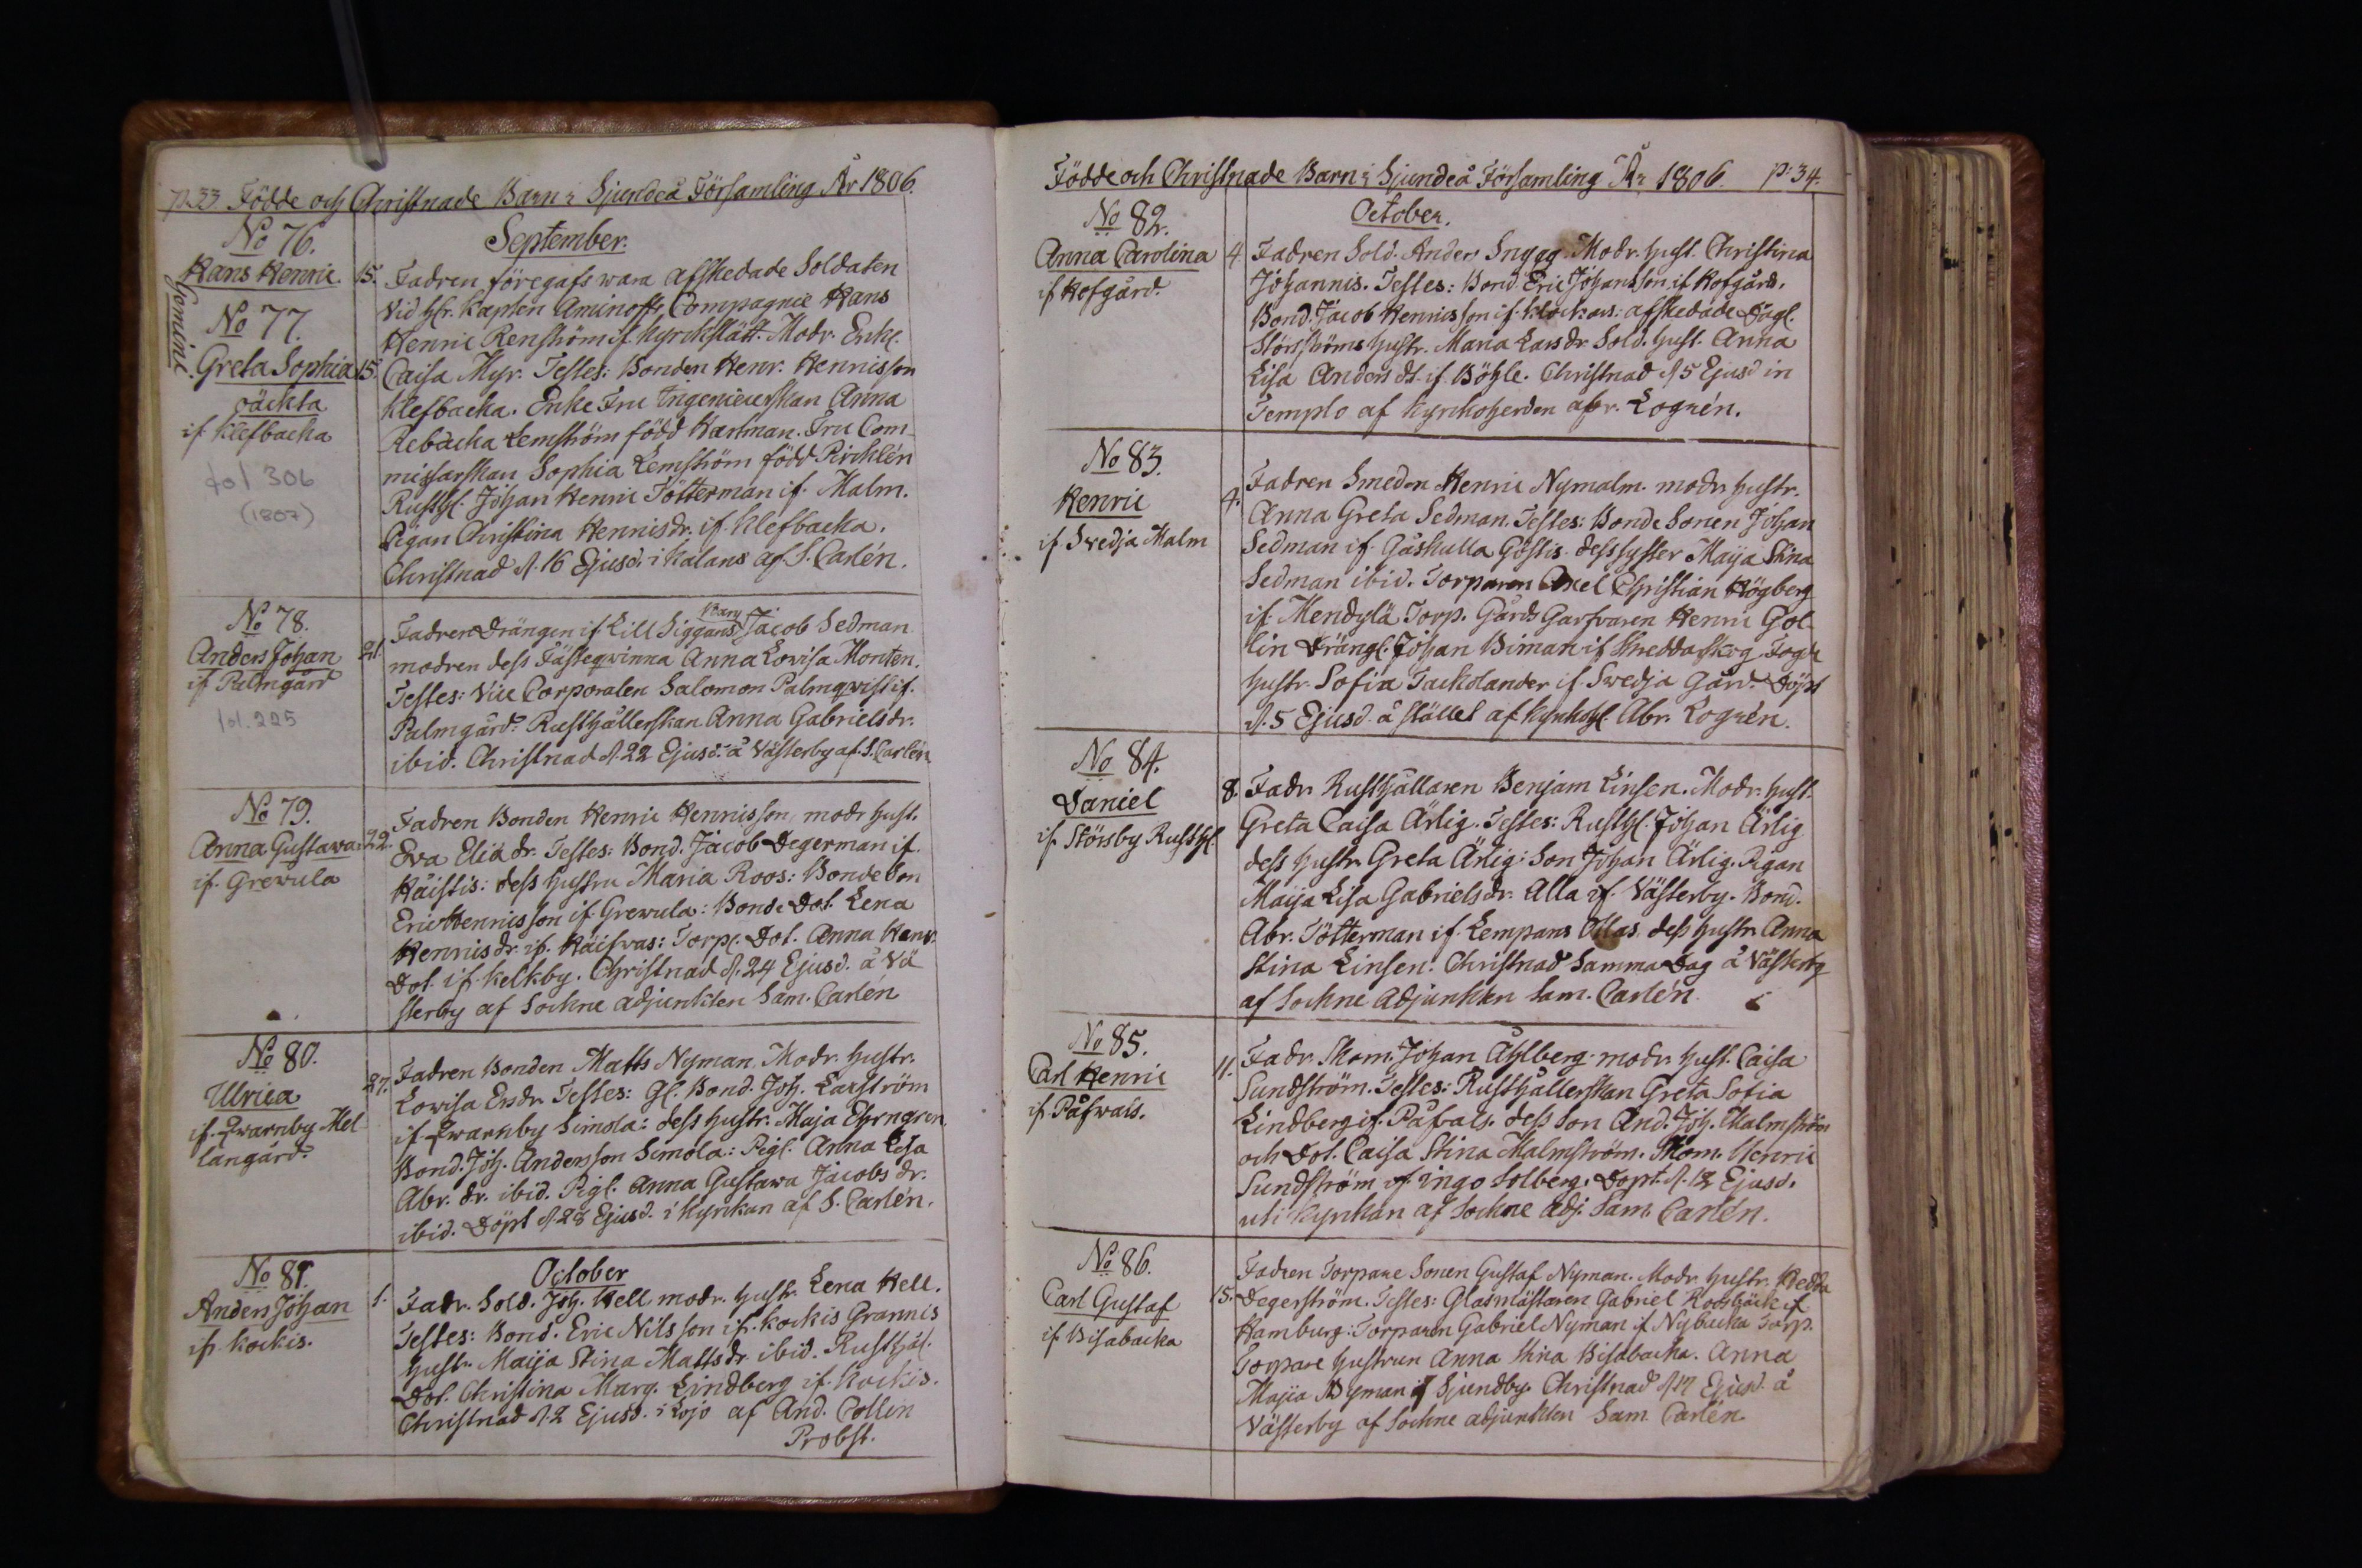 p.33. Födde och Christnade Barn i Sjundeå Församling År 1806.
No 76.
Hans Henric.
Gemini
No 77.
Greta Sophia
oäckta
if. Klefbacka
fol 306
(1807)
September.
15. Fadren föregafs wara afskedade Soldaten
Vid Hr. Kapten Aminoffs Compagnie Hans
Henric Renström if. Kyrckslätt. Modr. Enk.
15. Caisa Myr. Testes: Bonden Henr. Henrisson
Klefbacka. Enke Fru Ingenieurskan Anna
Rebäcka Lemström född Hartman. Fru Com-
missarskan Sophia Lemström född Pircklén
Rusth. Johan Henric Tötterman if. Malm.
Pigan Christina Henrisdr. if. Klefbacka.
Christnad d. 16 Ejusd. i Kalans af. S. Carlén.
No 78.
Anders Johan
if Palmgård
fol. 225
21. Fadren Drängen if. Lill Siggans Jacob Sedman
modren dess Fästeqwinna Anna Lowisa Monten.
Testes: Vice Corporalen Salomon Palmqwist if.
Palmgård. Rusthållerskan Anna Gabrielsdr.
ibid. Christnad d. 22 Ejusd. å Västerby af. S. Carlén
No 79.
Anna Gustawa
if. Grewula
22. Fadren Bonden Henric Henrisson, modr hust.
Eva Elia dr. Testes: Bond. Jacob Degerman if.
Häistis: dess hustru Maria Roos: Bonde Son
Eric Henrisson if Grewula: Bonde Dot. Lena
Henrisdr. if. Käifwas: Torp. Dot. Anna Henr.
Dot. if. Kelkby. Christnad d. 24 Ejusd. å Vä
sterby af Sockne adjunkten Sam. Carlén
No 80.
Ulrica
if. Qwarnby Mel
langård.
27. Fadren Bonden Matts Nyman. Modr. hustr.
Lowisa Ersdr. Testes: Gl. Bond. Joh. Laxström
if Qwarnby Simola: dess hustr. Maja Ehrngren.
Bond. Joh. Andersson Simola: Pigl. Anna Lisa
Abr. dr. ibid. Pigl. Anna Gustawa Jacobs dr.
ibid. Döpt d. 28 Ejusd. i Kyrckan af S. Carlén.
No 81.
Anders Johan
if. Kockis.
October
1. Fadr. Sold. Joh. Hell modr. hustr. Lena Hell.
Testes: Bond. Eric Nilsson if. Kockis Grannis
hustr. Maija Stina Mattsdr. ibid. Rusthål.
Dot. Christina Marg. Lindberg if. Kockis.
Christnad d. 2 Ejusd. i Lojo af And. Collin
Probst.
Födde och Christnade Barn i Sjundeå Församling År 1806. p: 34.
October.
No 82.
Anna Carolina
if Hofgård.
4. Fadren Sold. Anders Snygg. Modr. hust. Christina
Johannis. Testes: Bond. Eric Johansson if Hofgård.
Bond. Jacob Henrisson if. Klockars: afskedade
Störströms hustr. Maria Lars dr. Sold. hust. Anna
Lisa Anders dt. if. Böhle. Christnad d 5 Ejusd in
Templo af Kyrckoherden abr. Logrén.
No 83.
Henric
if. Swedja Malm
4. Fadren Smeden Henric Nymalm. modr hustr.
Anna Greta Sedman. Testes: Bonde Sonen Johan
Sedman if. Gåshulla Göstis. dess syster Maija Stina
Sedman ibid. Torparen Axel Christian Högberg
if. Mendylä Torp. Gårds Garfvaren Henric Gol-
lin Drängl. Johan Biman if Skreddarskog. Fogde
hustr. Sofia Tackolander if. Swedja Gård. Döpt
d. 5 Ejusd. å stället af Kyrkoh. Abr. Logrén.
No 84.
Daniel
if. Störsby Rusth.
8. Fadr. Rusthållaren Benjam Linsen. Modr. hust.
Greta Caisa Ärlig. Testes: Rusth. Johan Ärlig
dess hustr. Greta Ärlig: Son Johan Ärlig. Pigan
Maija Lisa Gabrielsdr. Alla if. Västerby. Bond.
Abr. Tötterman if. Lempans Ollas, dess hustr Anna
Stina Linsen. Christnad samma Dag å Västerby
af Sockne Adjunkten Sam. Carlén.
No 85.
Carl Henric
if. Påfwals.
11. Fadr. Skom. Johan Åhlberg. modr. hust. Caisa
Sundström. Testes: Rusthållerskan Greta Sofia
Lindberg if. Påfvals. dess Son And. Joh. Malmström
och Dot. Caisa Stina Malmström. Skom. Henric
Sundström if. Ingo Solberg. Döpt d. 12 Ejusd.
uti Kyrckan af Sockne adj. Sam. Carlén.
No 86.
Carl Gustaf
if Bisabacka
15. Fadren Torpare Sonen Gustaf Nyman. Modr. hustr. Hedda
Degerström. Testes: Glasmästaren Gabriel Roosbäck if
Hamburg: Torparen Gabriel Nyman if Nybacka Torp.
Torpare hustrun Anna Stina Bisabacka. Anna
Majia Nyman if Sjundby. Christnad d 17 Ejusd. å
Västerby af Sockne adjunkten Sam. Carlén.